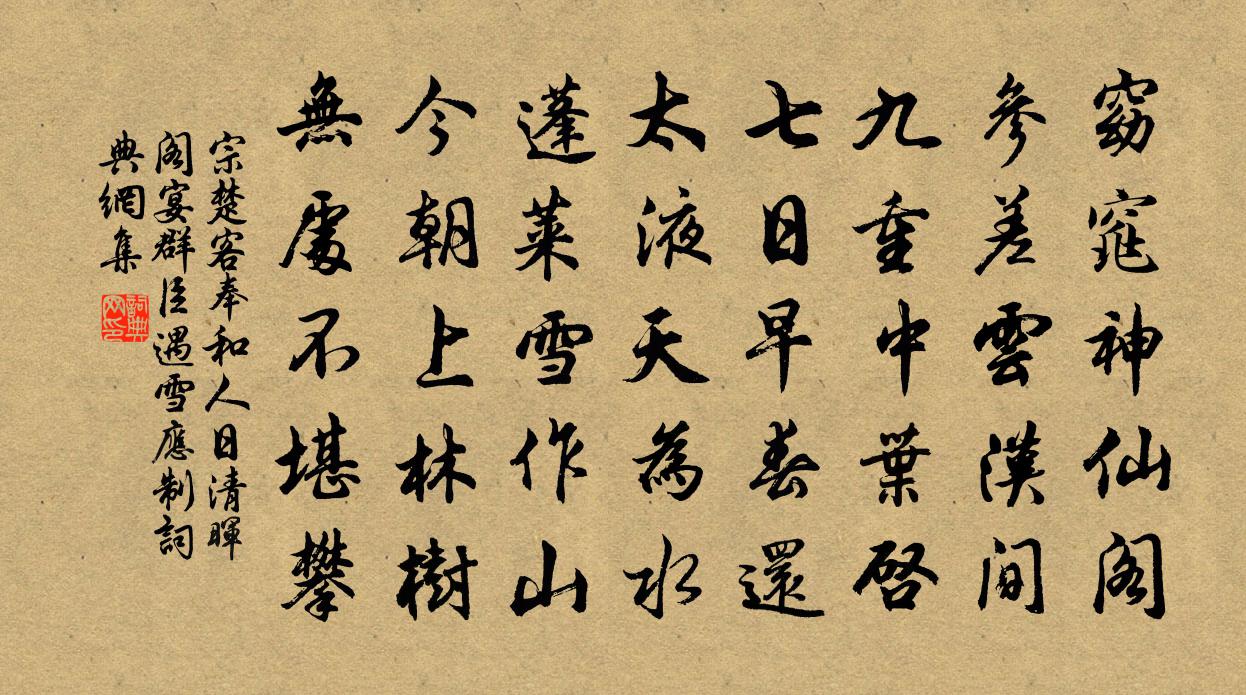 窈窕神仙閣
參差雲漢間
九重中葉啓
七日早春還
太液天為水
蓬萊雪作山
今朝上林樹
無處不堪攀
宗楚客奉和人日清暉
閣宴群臣遇雪應制詞
典網集
詞典網印